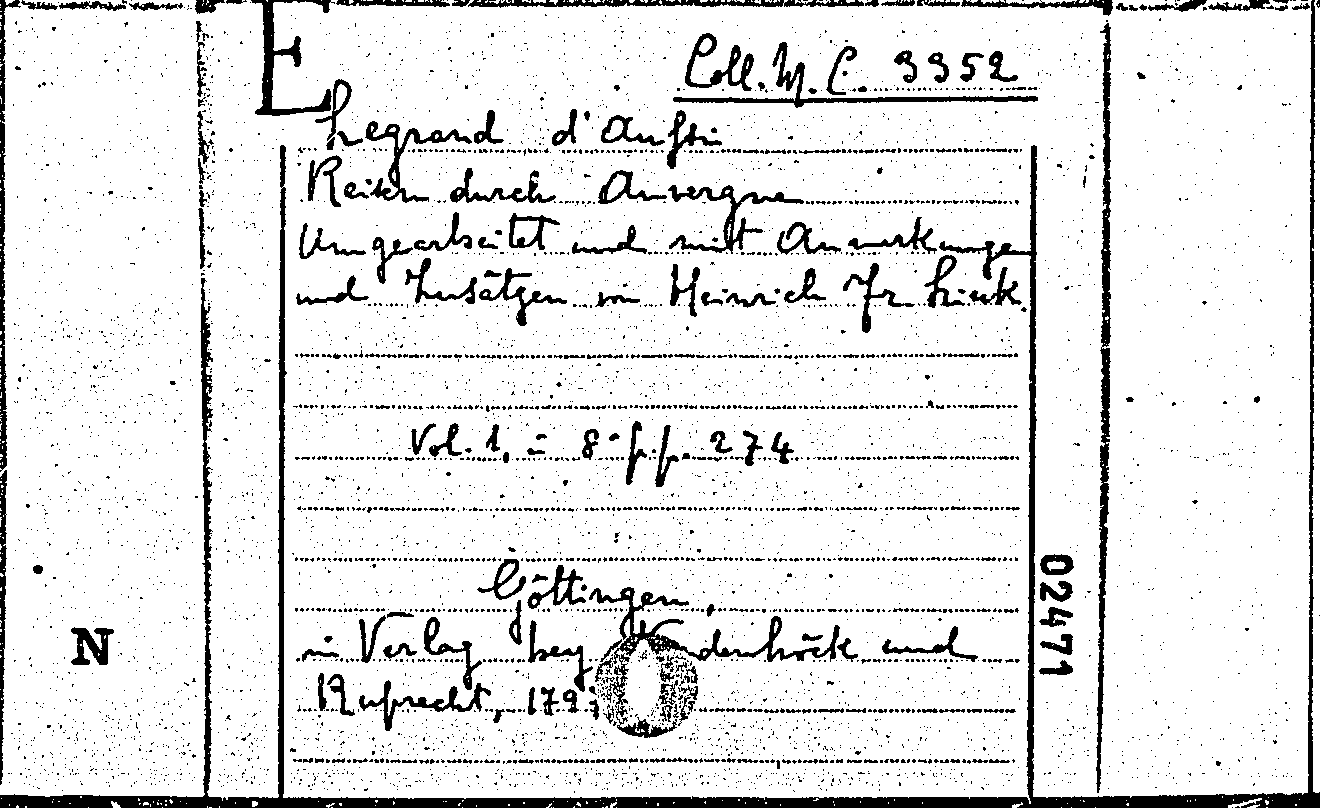 E
Coll. M. C. 3352
Legrand d'Aussi
Reisen durch Auvergne
Umgearbeitet und mitt Anmerkungen
und Zusätzen von Heinrich Fr. Link.
Vol. 1, in 8° pp. 274
Göttingen,
in Verlag bey denhöck und
Ruprecht, 179
02471
N